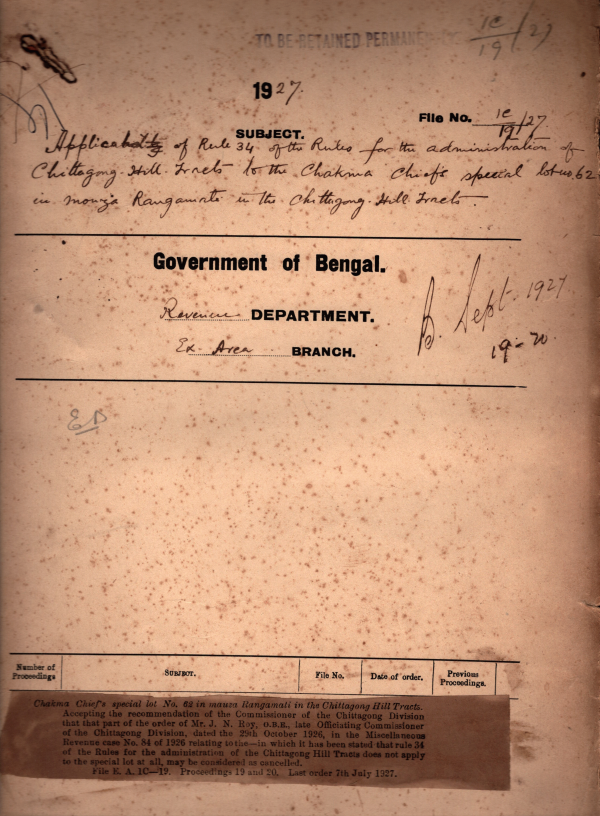 TO BE RETAINED PERMANE
1C/19/27
1927.
File No. 1C/19/27
SUBJECT.
Applicability of Rule 34 of the Rules for the administration of
Chittagong Hill Tracts to the Chakma Chief's special lot no. 62
in mouza Rangamati in the Chittagong Hill Tracts.
Government of Bengal.
Revenue DEPARTMENT.
Ex. Area BRANCH.
B. Sept. 1927
19-20
Number of Proceedings
SUBJECT.
File No.
Date of order.
Previous Proceedings.
Chakma Chief's special lot No. 62 in mauza Rangamati in the Chittagong Hill Tracts.
Accepting the recommendation of the Commissioner of the Chittagong Division
that that part of the order of Mr. J. N. Roy, O.B.E., late Officiating Commissioner
of the Chittagong Division, dated the 29th October 1926, in the Miscellaneous
Revenue case No. 84 of 1926 relating to the—in which it has been stated that rule 34
of the Rules for the administration of the Chittagong Hill Tracts does not apply
to the special lot at all, may be considered as cancelled.
File E. A. 1C—19. Proceedings 19 and 20. Last order 7th July 1927.